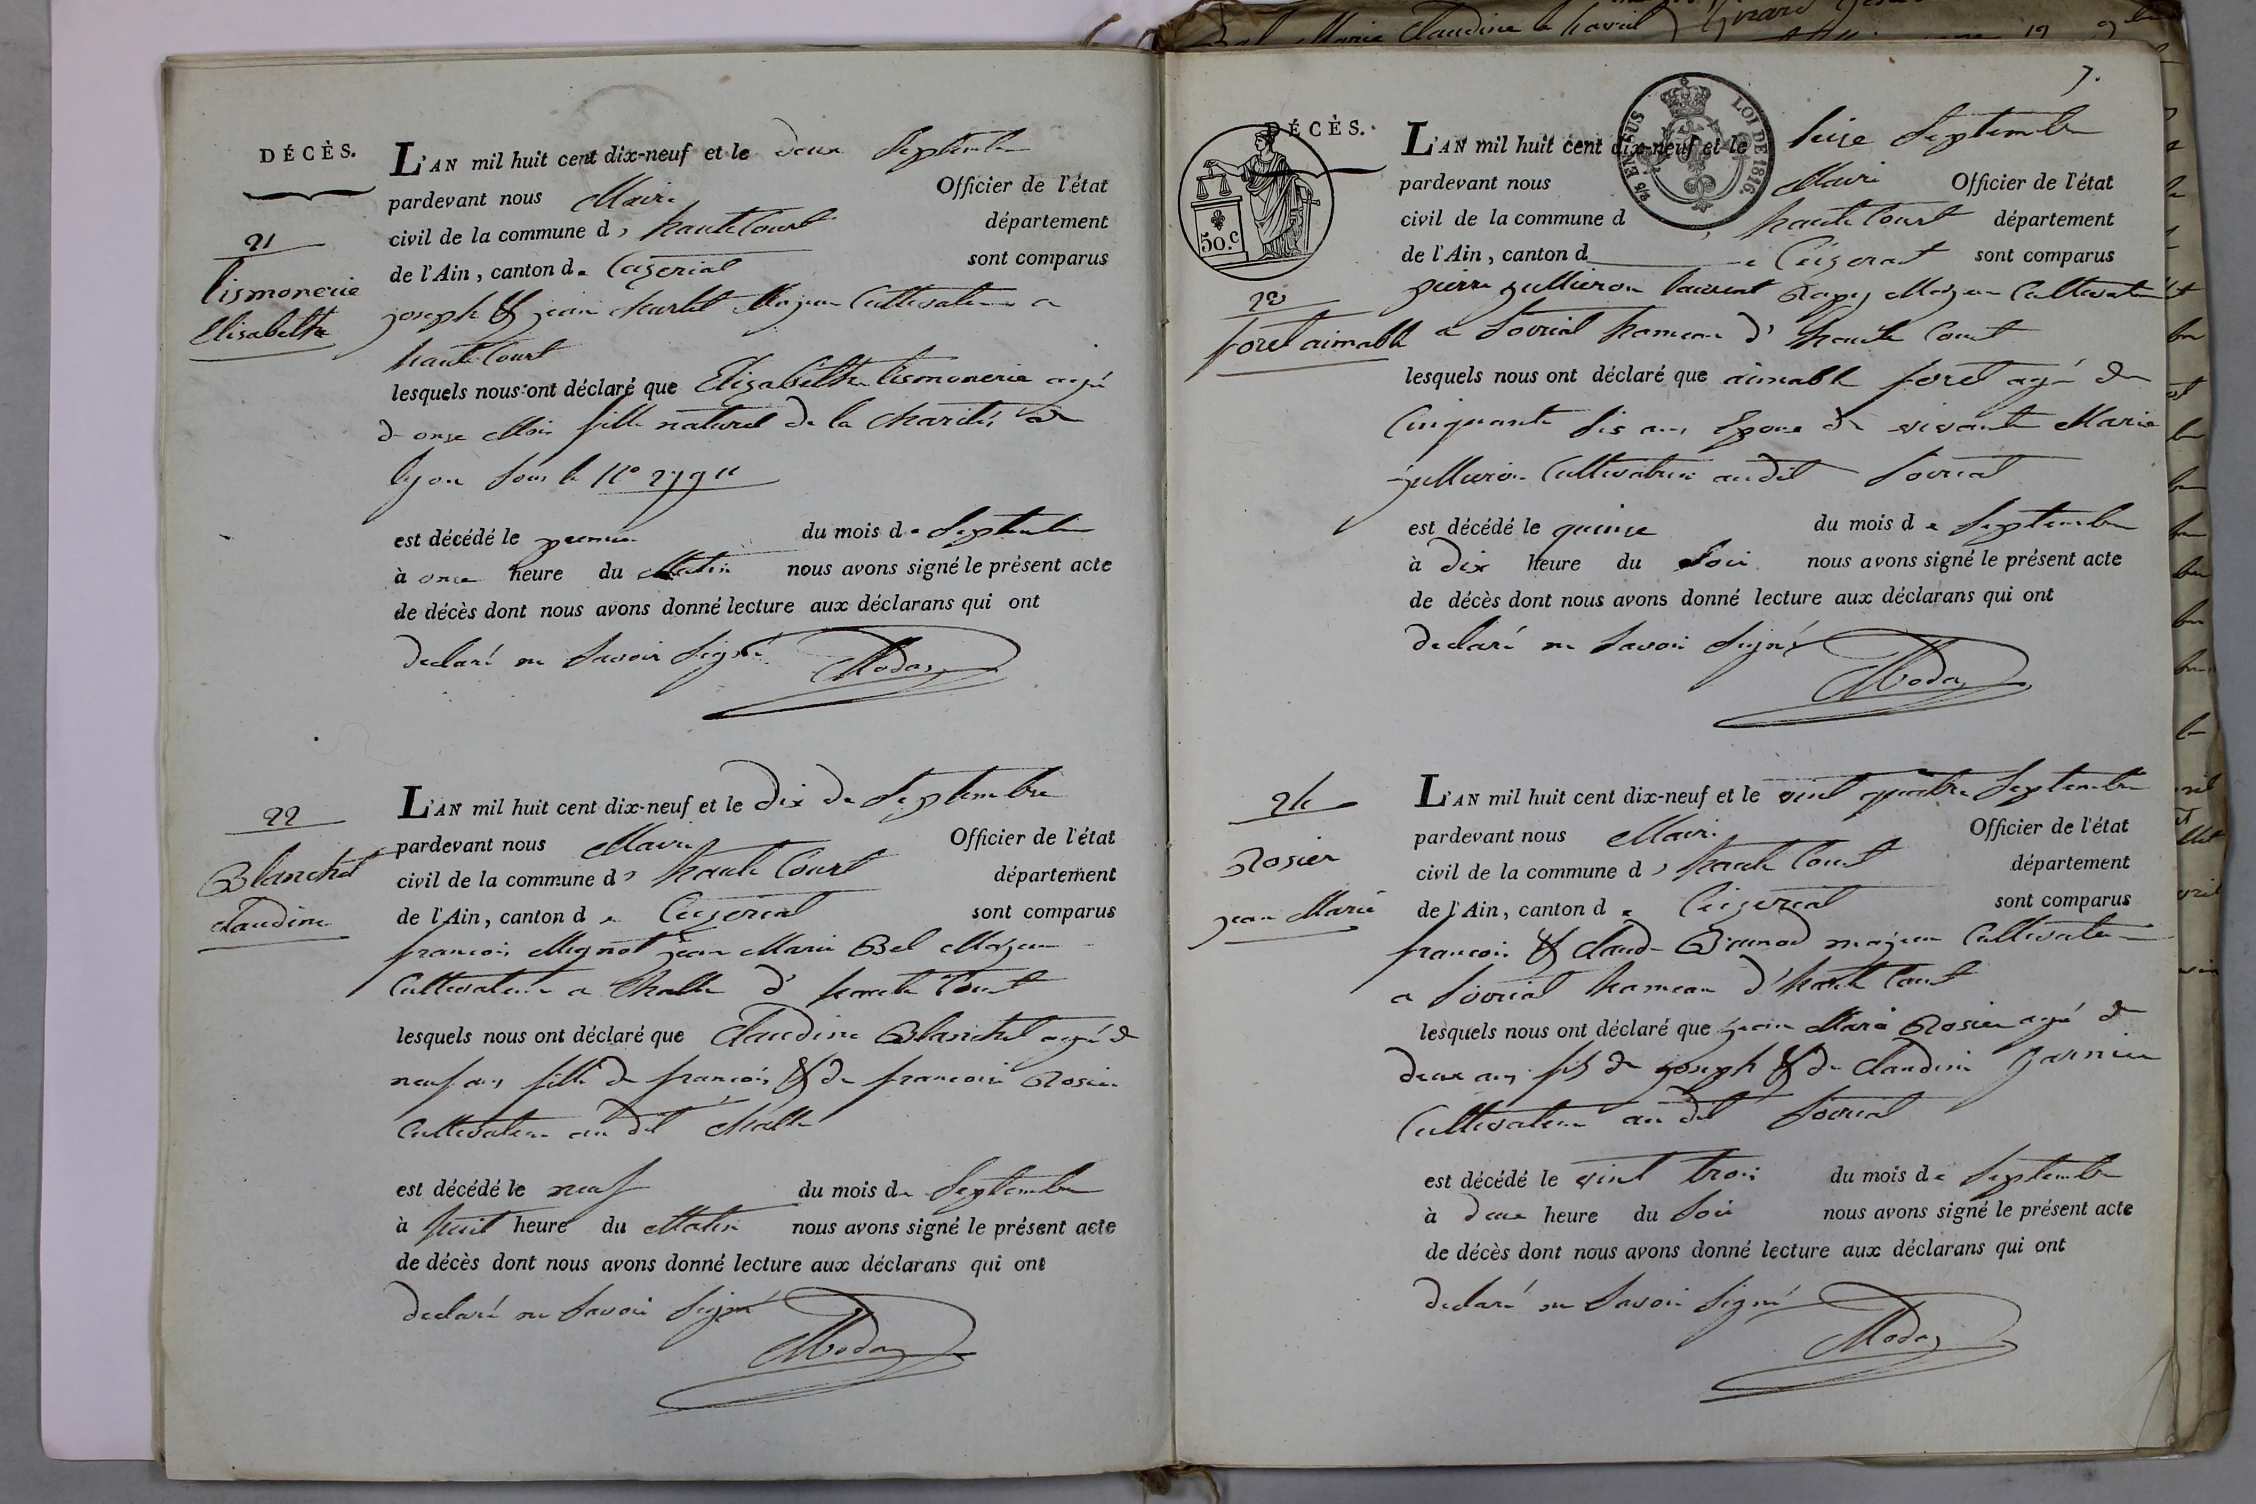 DÉCÈS.
21
lismonerie
Elisabeth
L'AN mil huit cent dix-neuf et le deux Septembre
pardevant nous Maire Officier de l'état
civil de la commune d, haute Court département
de l'Ain, canton de Ceyzeriat sont comparus
joseph & jean Mayeur Cultivateurs a
haute Court
lesquels nous ont déclaré que Elizabeth lismonerie agé
d onze Mois fille naturel de la Charité de
lyon sous le N° 279
est décédé le premier du mois de Septembre
à onze heure du Matin nous avons signé le présent acte
de décès dont nous avons donné lecture aux déclarans qui ont
declaré ne Savoir Signé
22
Blanchet
claudine
L'AN mil huit cent dix-neuf et le dix de Septembre
pardevant nous Maire Officier de l'état
civil de la commune d, haute Court département
de l'Ain, canton de Ceyzeriat sont comparus
francois Mignot jean Marie Bel Mayeur
Cultivateur a Challe d' haute Court
lesquels nous ont déclaré que Claudine Blanchet agé de
neuf ans fille de francois & de francoise Rosier
Cultivateur au dit Challe
est décédé le neuf du mois de Septembre
à huit heure du Matin nous avons signé le présent acte
de décès dont nous avons donné lecture aux déclarans qui ont
declaré ne Savoir Signé
7.
DÉCÈS.
50.c
2/5 EN SUS
LOI DE 1816
23
foret aimable
L'AN mil huit cent dix-neuf et le seize Septembre
pardevant nous Maire Officier de l'état
civil de la commune d, haute Court département
de l'Ain, canton de Ceizeriat sont comparus
pierre jullieron laurent Mayeur Cultivateur
a Sovriat hameau d' haute Court
lesquels nous ont déclaré que aimable foret agé de
Cinquante Sis ans Epoux de vivante Marie
jullieron Cultivatrice audit Sovriat
est décédé le quinze du mois de Septembre
à dix heure du Soir nous avons signé le présent acte
de décès dont nous avons donné lecture aux déclarans qui ont
declaré ne Savoir Signé
24
Rosier
jean Marie
L'AN mil huit cent dix-neuf et le vint quatre Septembre
pardevant nous Maire Officier de l'état
civil de la commune d, haute Court département
de l'Ain, canton de Ceizeriat sont comparus
francois & Claude mayeur Cultivateur
a Sovriat hameau d'haute Court
lesquels nous ont déclaré que jean Marie Rosier agé de
deux ans fils de joseph & de Claudine garnier
Cultivateur au dit Sovriat
est décédé le vint trois du mois de Septembre
à deux heure du Soir nous avons signé le présent acte
de décès dont nous avons donné lecture aux déclarans qui ont
declaré ne Savoir Signé